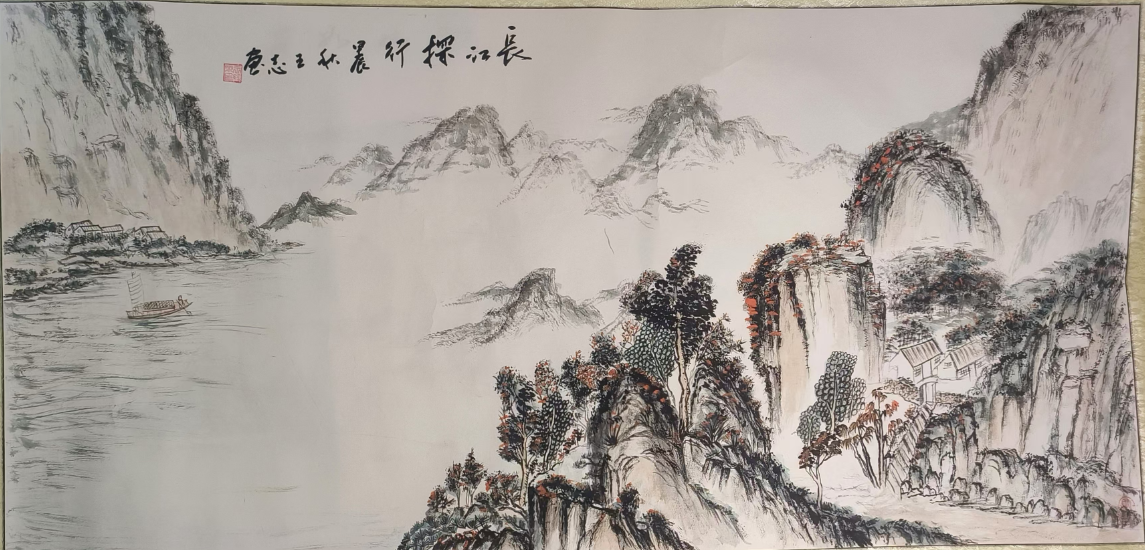 長江探行晨秋王志画